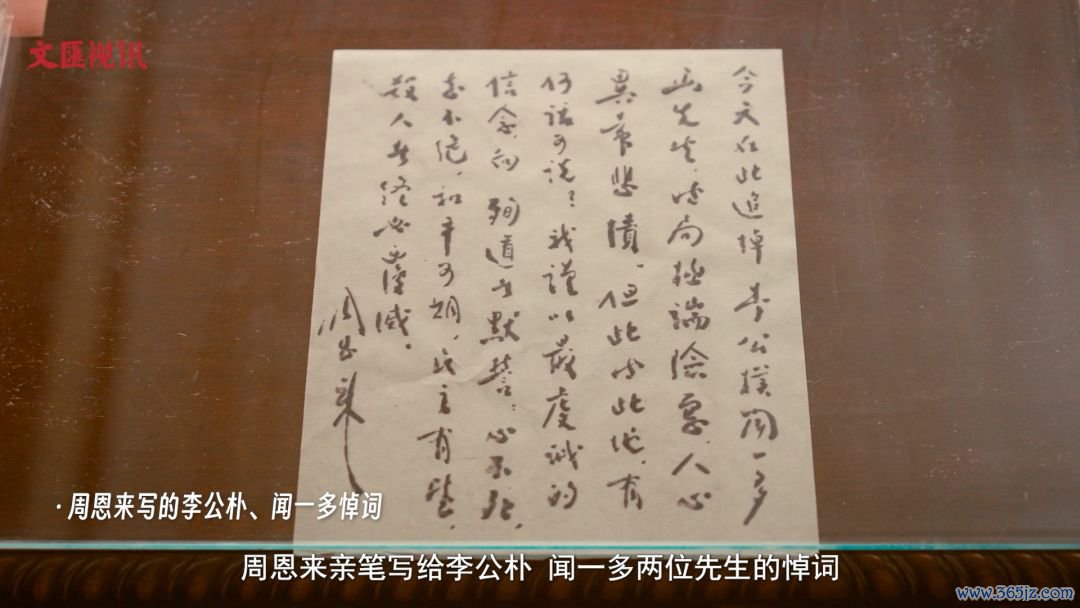 文匯视讯
今天在此追悼李公樸聞一多
两先生，时局極端險惡，人心
異常悲憤，但此时此地，有
何話可說？我謹以最虔誠的
信念，向殉道者默誓：心不死，
志不绝，和平可期，民主有望，
殺人者终必覆滅。
周恩来
·周恩来写的李公朴、闻一多悼词
周恩来亲笔写给李公朴 闻一多两位先生的悼词
www.365jz.com